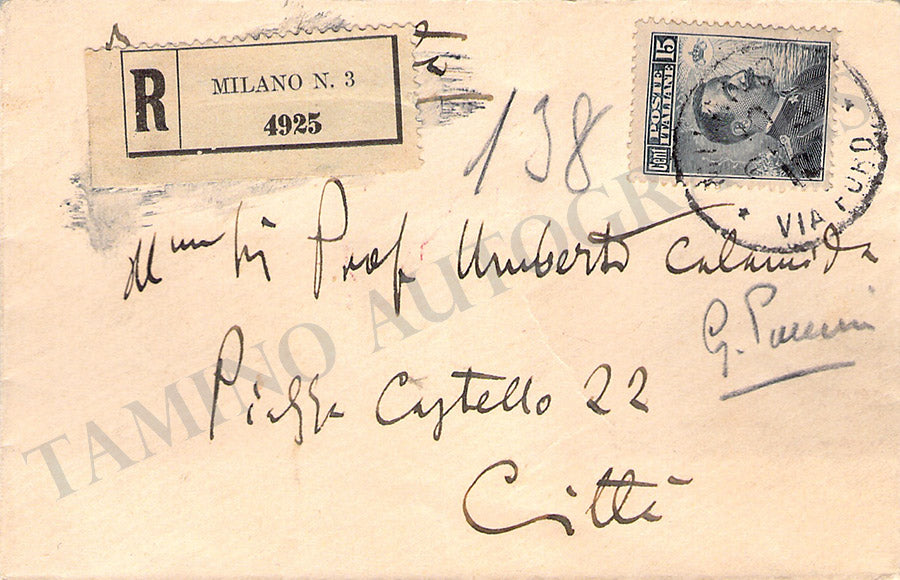 R
MILANO N. 3
4925
138
15
POSTE
ITALIANE
Cent
VIA
Prof Umberto Calamida
G. Puccini
Piazza Castello 22
Città
TAMINO AUTOGRAPHS